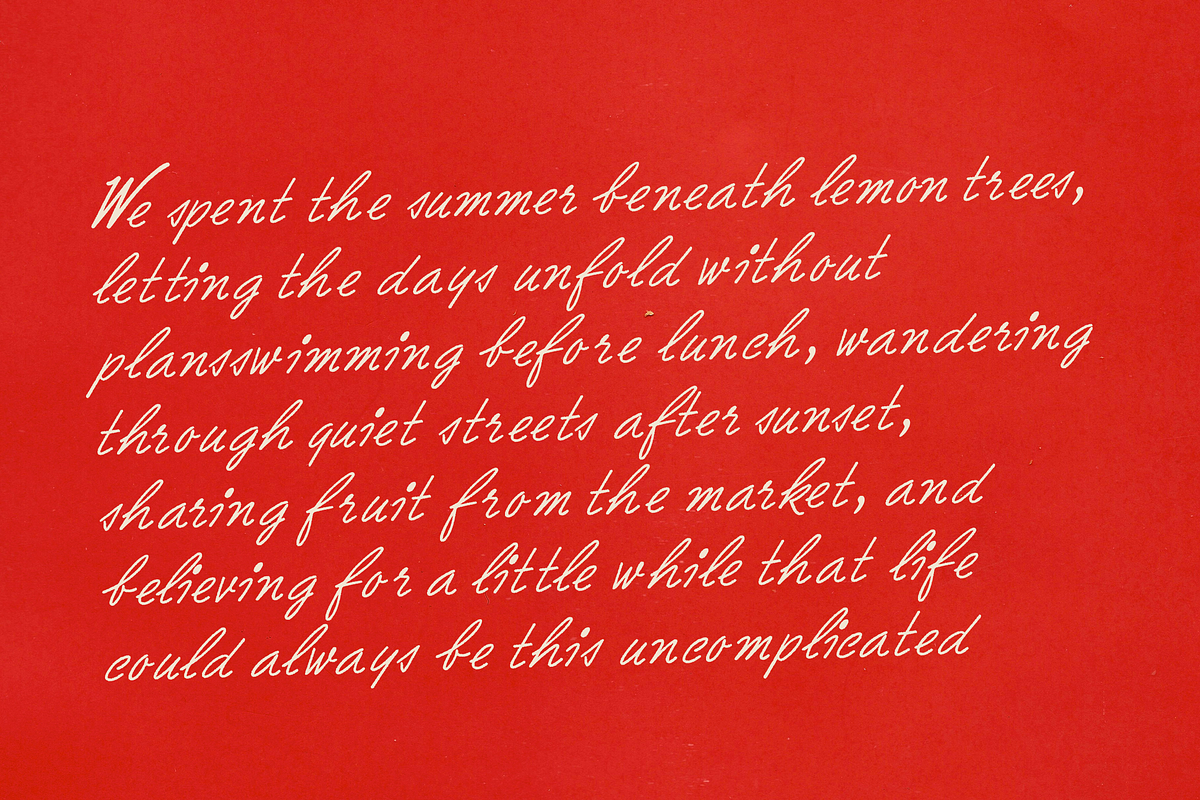 We spent the summer beneath lemon trees,
letting the days unfold without
plansswimming before lunch, wandering
through quiet streets after sunset,
sharing fruit from the market, and
believing for a little while that life
could always be this uncomplicated